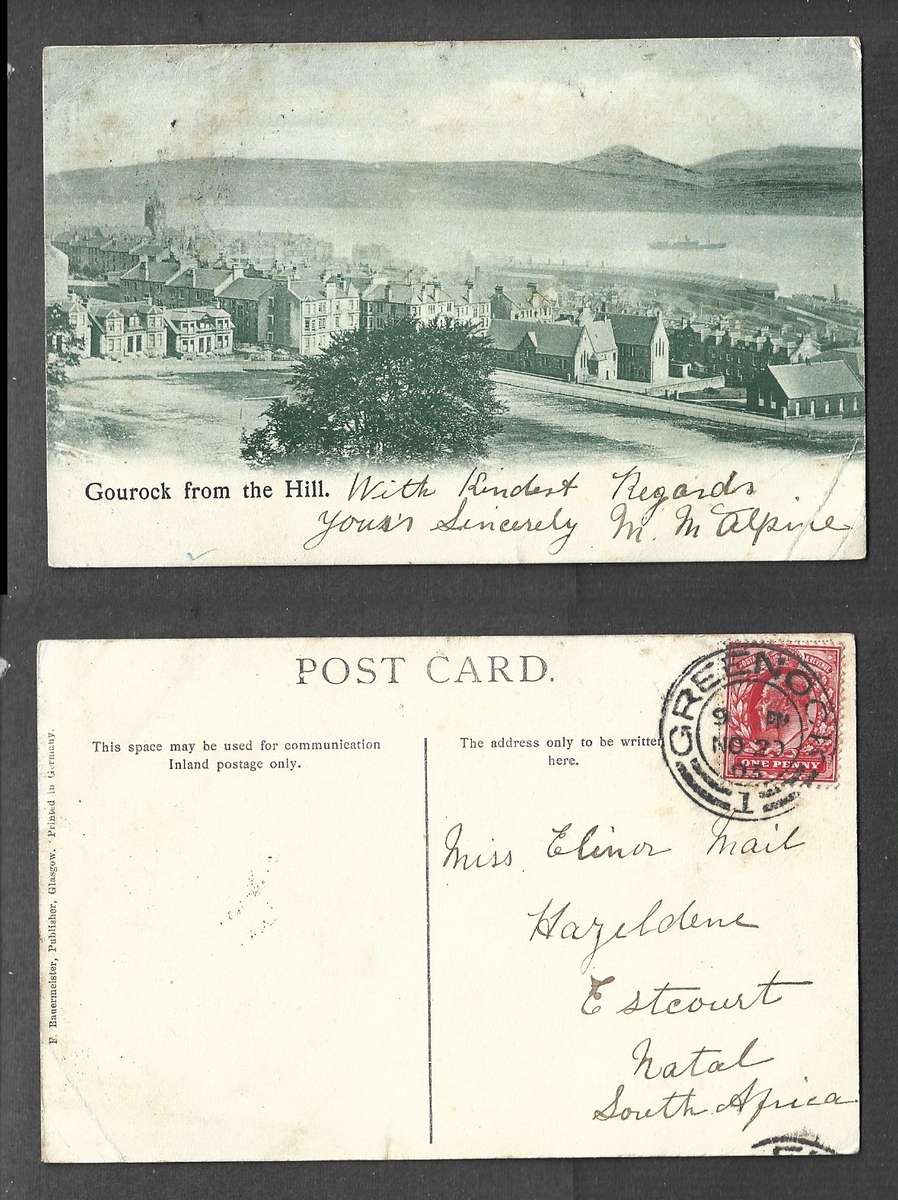 Gourock from the Hill. With Kindest Regards
Yours's Sincerely M. McAlpine
POST CARD.
This space may be used for communication
Inland postage only.
The address only to be written
here.
GREENOCK
9 PM
NO 20
1
ONE PENNY
Miss Elinor Mail
Hazeldene
Estcourt
Natal
South Africa
F. Bauermeister, Publisher, Glasgow. Printed in Germany.